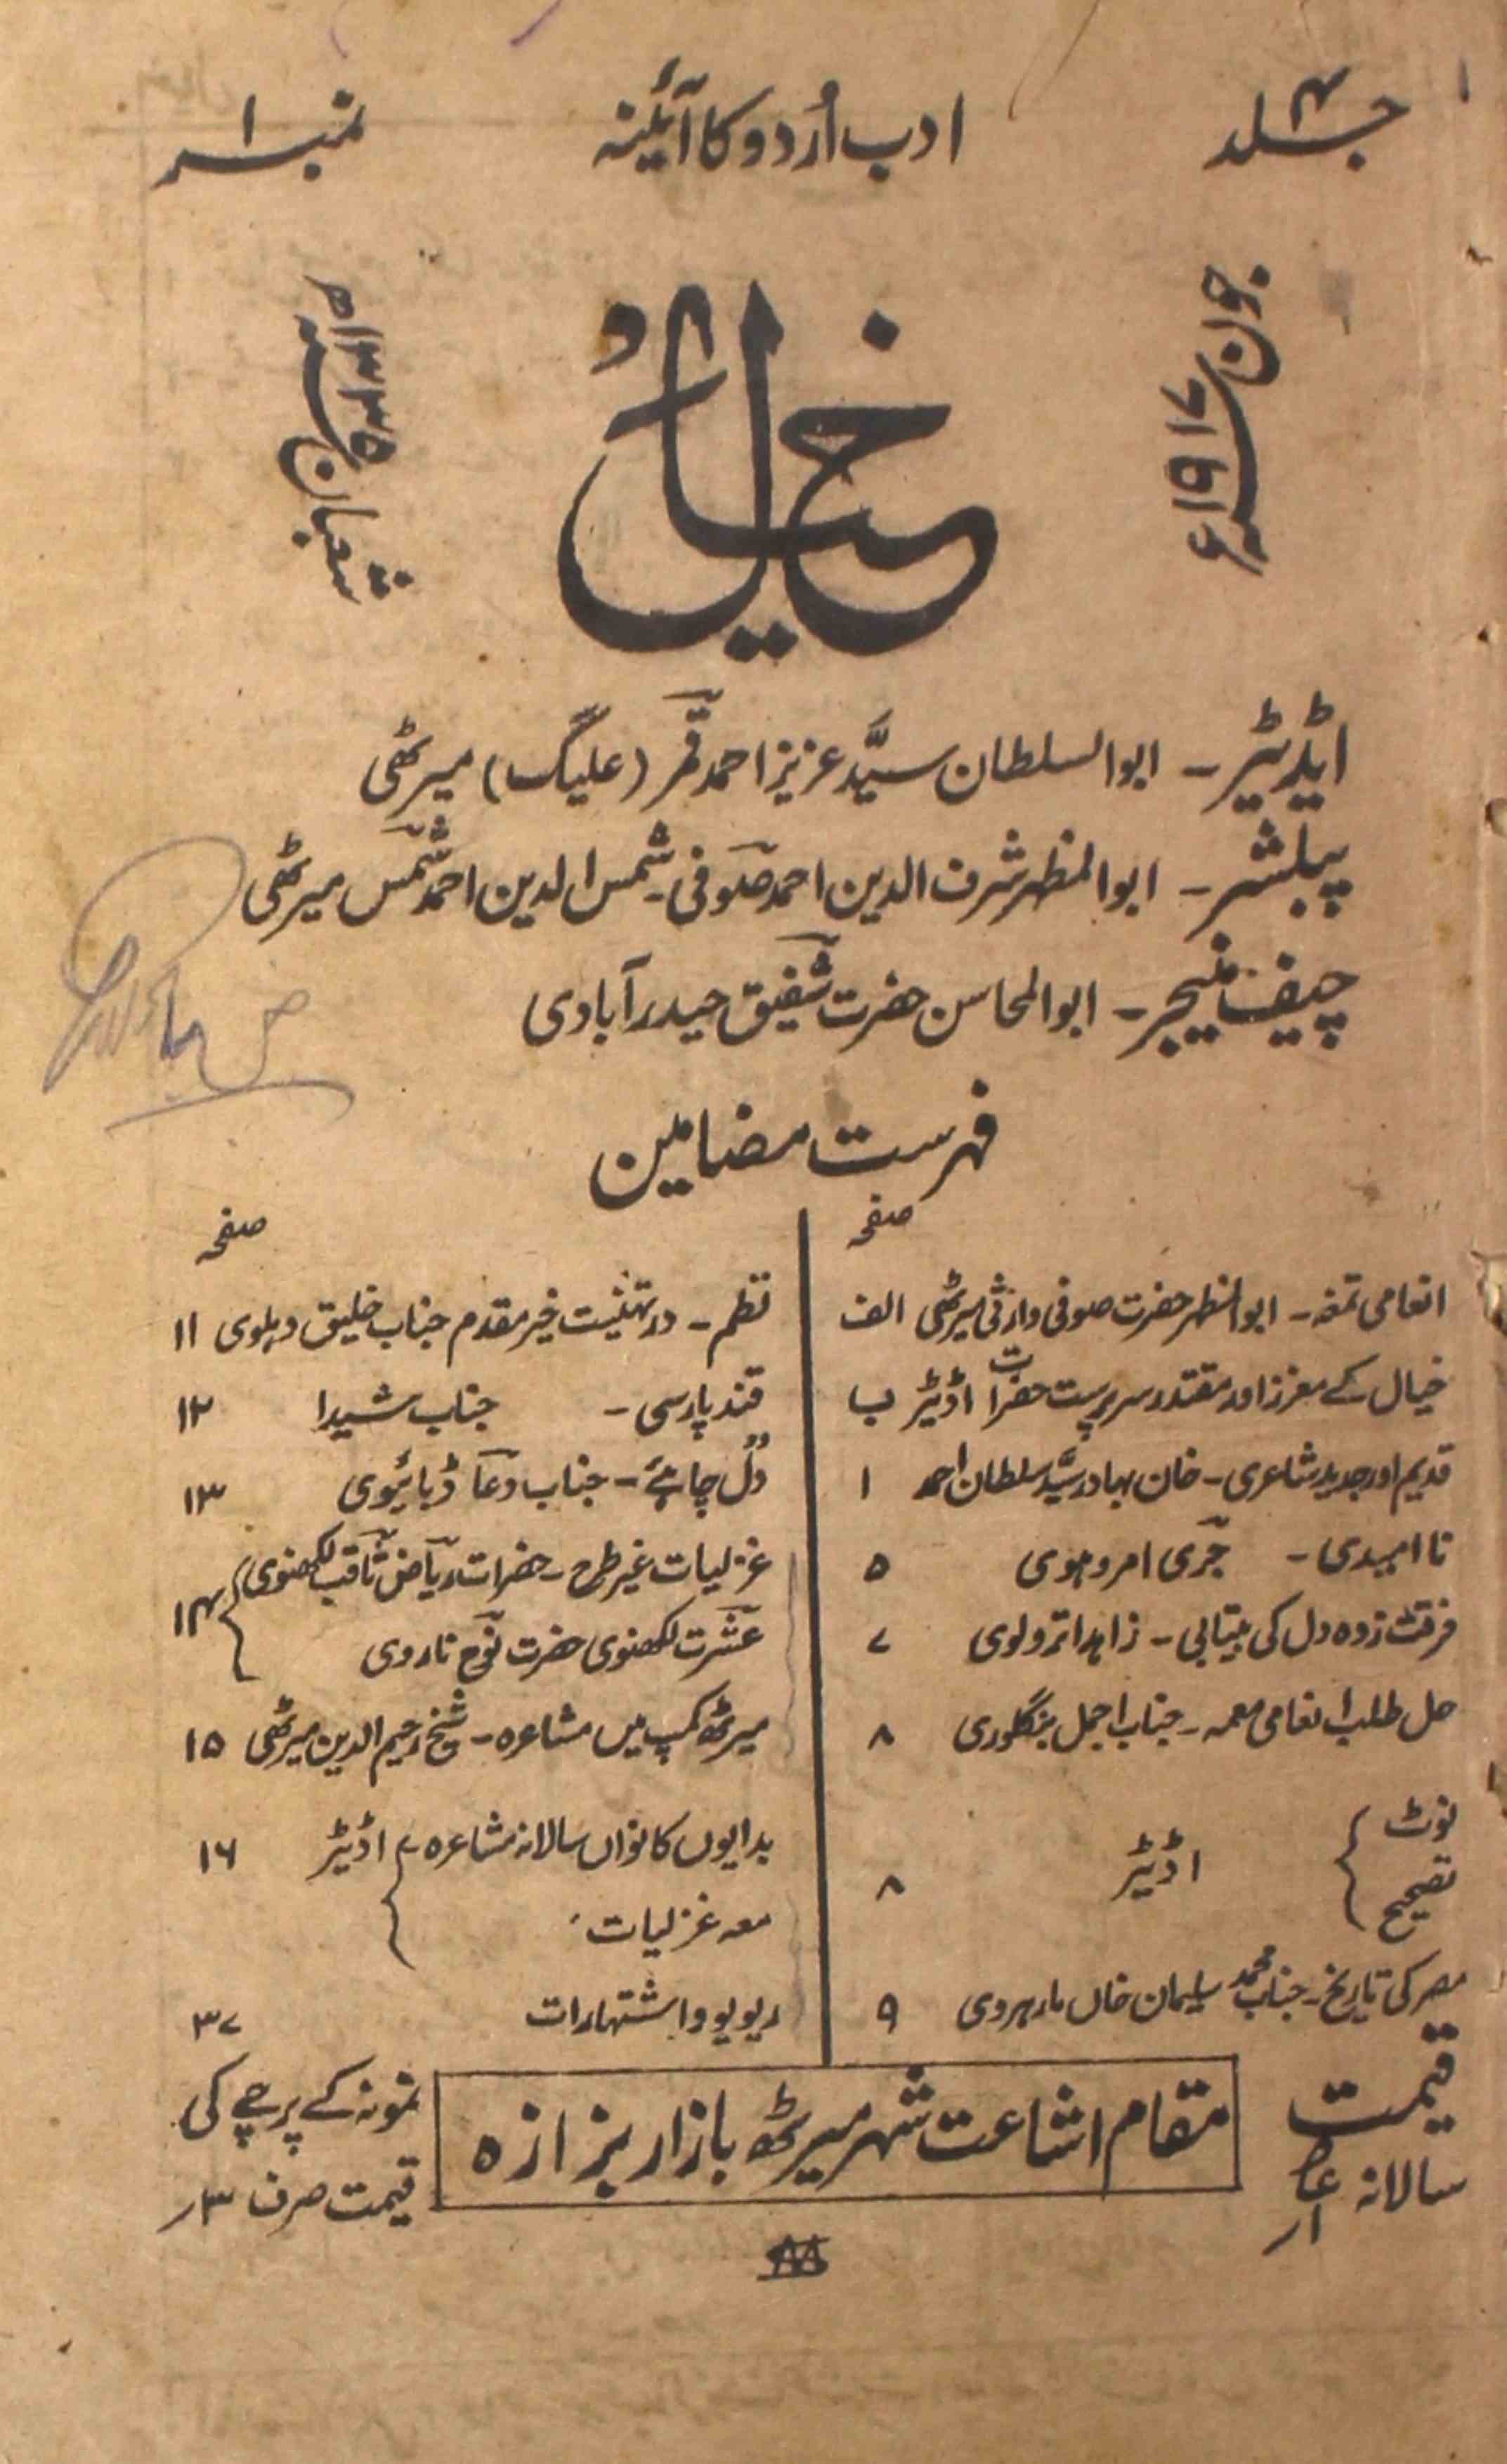 جلد ۴
ادب اُردو کا آئینہ
نمبر ۱
جون ۱۹۱۷ء
خیال
شعبان ۱۳۳۵ھ
ایڈیٹر۔ ابوالسلطان سیّد عزیز احمد قمر (علیگ) میرٹھی
پبلشر۔ ابوالمظہر شرف الدین احمد صوفی۔ شمس الدین احمد شمس میرٹھی
چیف منیجر۔ ابوالمحاسن حضرت شفیق حیدرآبادی
فہرست مضامین
صفحہ
انعامی تمغہ۔ ابوالمظہر حضرت صوفی وارثی میرٹھی الف
خیال کے معزز اور مقتدر سرپرست حضرات اڈیٹر ب
قدیم اور جدید شاعری۔ خان بہادر سیّد سلطان احمد ۱
نا امیدی۔ جری امروہوی ۵
فرقت زدہ دل کی بیتابی۔ زاہد اترولوی ۷
حل طلب انعامی معمہ۔ جناب اجمل بنگلوری ۸
نوٹ
تصحیح
اڈیٹر ۸
مصر کی تاریخ۔ جناب محمد سلیمان خاں مارہروی ۹
صفحہ
نظم۔ در تہنیت خیر مقدم جناب خلیق دہلوی ۱۱
قند پارسی۔ جناب شیدا ۱۲
دل چاہئے۔ جناب دعا ڈبائیوی ۱۳
غزلیات غیر طرح۔ حضرات ریاض ثاقب لکھنوی
عشرت لکھنوی حضرت نوح ناروی ۱۴
میرٹھ کمپ میں مشاعرہ۔ شیخ رحیم الدین میرٹھی ۱۵
بدایوں کا نواں سالانہ مشاعرہ اڈیٹر ۱۶
معہ غزلیات
ریویو و اشتہارات ۳۷
قیمت
سالانہ
مقام اشاعت شہر میرٹھ بازار بزازہ
نمونہ کے پرچے کی
قیمت صرف ۳؍